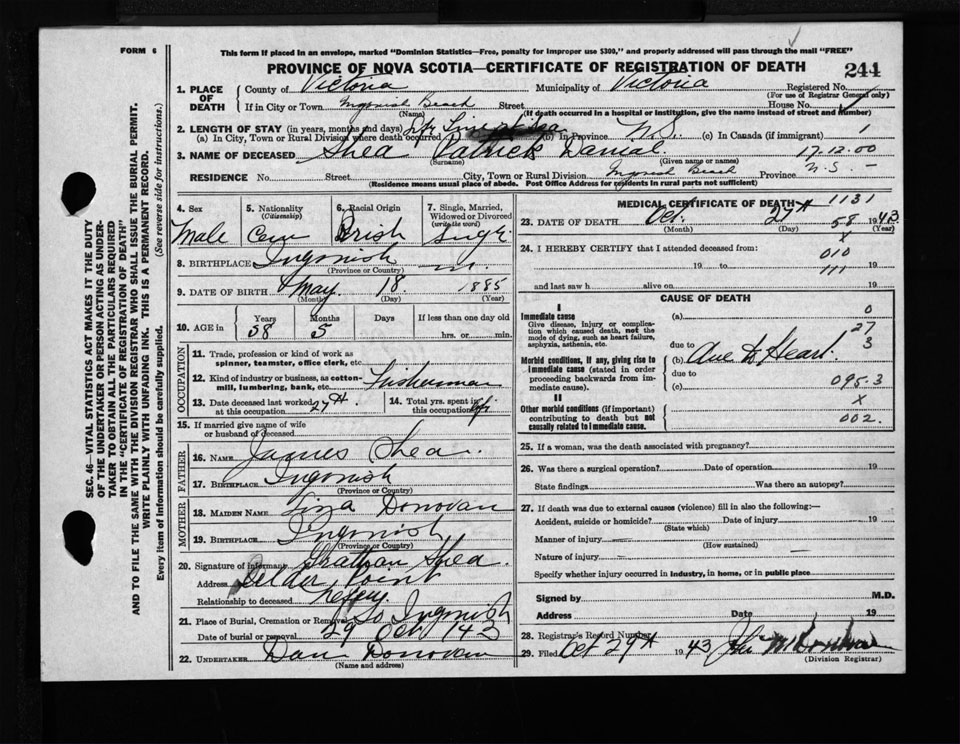 FORM 6
This form if placed in an envelope, marked "Dominion Statistics—Free, penalty for improper use $300," and properly addressed will pass through the mail "FREE"
PROVINCE OF NOVA SCOTIA—CERTIFICATE OF REGISTRATION OF DEATH
244
1. PLACE OF DEATH
County of Victoria Municipality of Victoria Registered No.
(For use of Registrar General only)
If in City or Town Ingonish Beach Street House No.
(Name) (If death occurred in a hospital or institution, give the name instead of street and number)
2. LENGTH OF STAY (in years, months and days)
(a) In City, Town or Rural Division where death occurred (b) In Province N.S. (c) In Canada (if immigrant) 1
3. NAME OF DECEASED Shea Patrick Danial 17.12.00
(Surname) (Given name or names)
RESIDENCE No. Street City, Town or Rural Division Ingonish Beach Province N.S. —
(Residence means usual place of abode. Post Office Address for residents in rural parts not sufficient)
4. Sex Male
5. Nationality (Citizenship) Can
6. Racial Origin Irish
7. Single, Married, Widowed or Divorced (write the word) Single
8. BIRTHPLACE Ingonish
(Province or Country)
9. DATE OF BIRTH May 18. 1885
(Month) (Day) (Year)
10. AGE in Years 58 Months 5 Days If less than one day old hrs. or min.
OCCUPATION
11. Trade, profession or kind of work as spinner, teamster, office clerk, etc.
12. Kind of industry or business, as cotton-mill, lumbering, bank, etc. Fisherman
13. Date deceased last worked at this occupation 27th
14. Total yrs. spent in this occupation
15. If married give name of wife or husband of deceased
FATHER
16. NAME James Shea.
17. BIRTHPLACE Ingonish
(Province or Country)
MOTHER
18. MAIDEN NAME Liza Donovan
19. BIRTHPLACE Ingonish
(Province or Country)
20. Signature of informant Grattan Shea.
Address Point
Relationship to deceased
21. Place of Burial, Cremation or Removal So Ingonish
Date of burial or removal 29 Oct 1943
22. UNDERTAKER Dan Donovan
(Name and address)
MEDICAL CERTIFICATE OF DEATH 1131
23. DATE OF DEATH Oct. 27th 58 1943
(Month) (Day) (Year)
x
24. I HEREBY CERTIFY that I attended deceased from:
010
19 to 111 19
and last saw h alive on 19
CAUSE OF DEATH
I
Immediate cause
Give disease, injury or complication which caused death, not the mode of dying, such as heart failure, asphyxia, asthenia, etc.
(a) 0
27
due to 3
Morbid conditions, if any, giving rise to immediate cause (stated in order proceeding backwards from immediate cause).
(b) Due to Heart.
due to
(c) 095.3
II
x
Other morbid conditions (if important) contributing to death but not causally related to immediate cause.
002.
25. If a woman, was the death associated with pregnancy?
26. Was there a surgical operation? Date of operation 19
State findings Was there an autopsy?
27. If death was due to external causes (violence) fill in also the following:—
Accident, suicide or homicide? Date of injury 19
(State which)
Manner of injury
(How sustained)
Nature of injury
Specify whether injury occurred in industry, in home, or in public place
Signed by M.D.
Address Date 19
28. Registrar's Record Number
29. Filed Oct 29th 1943
(Division Registrar)
SEC. 46—VITAL STATISTICS ACT MAKES IT THE DUTY
OF THE UNDERTAKER OR PERSON ACTING AS UNDER-
TAKER TO OBTAIN ALL THE PARTICULARS REQUIRED
IN THE "CERTIFICATE OF REGISTRATION OF DEATH"
AND TO FILE THE SAME WITH THE DIVISION REGISTRAR WHO SHALL ISSUE THE BURIAL PERMIT.
WRITE PLAINLY WITH UNFADING INK. THIS IS A PERMANENT RECORD.
Every item of information should be carefully supplied. (See reverse side for instructions.)